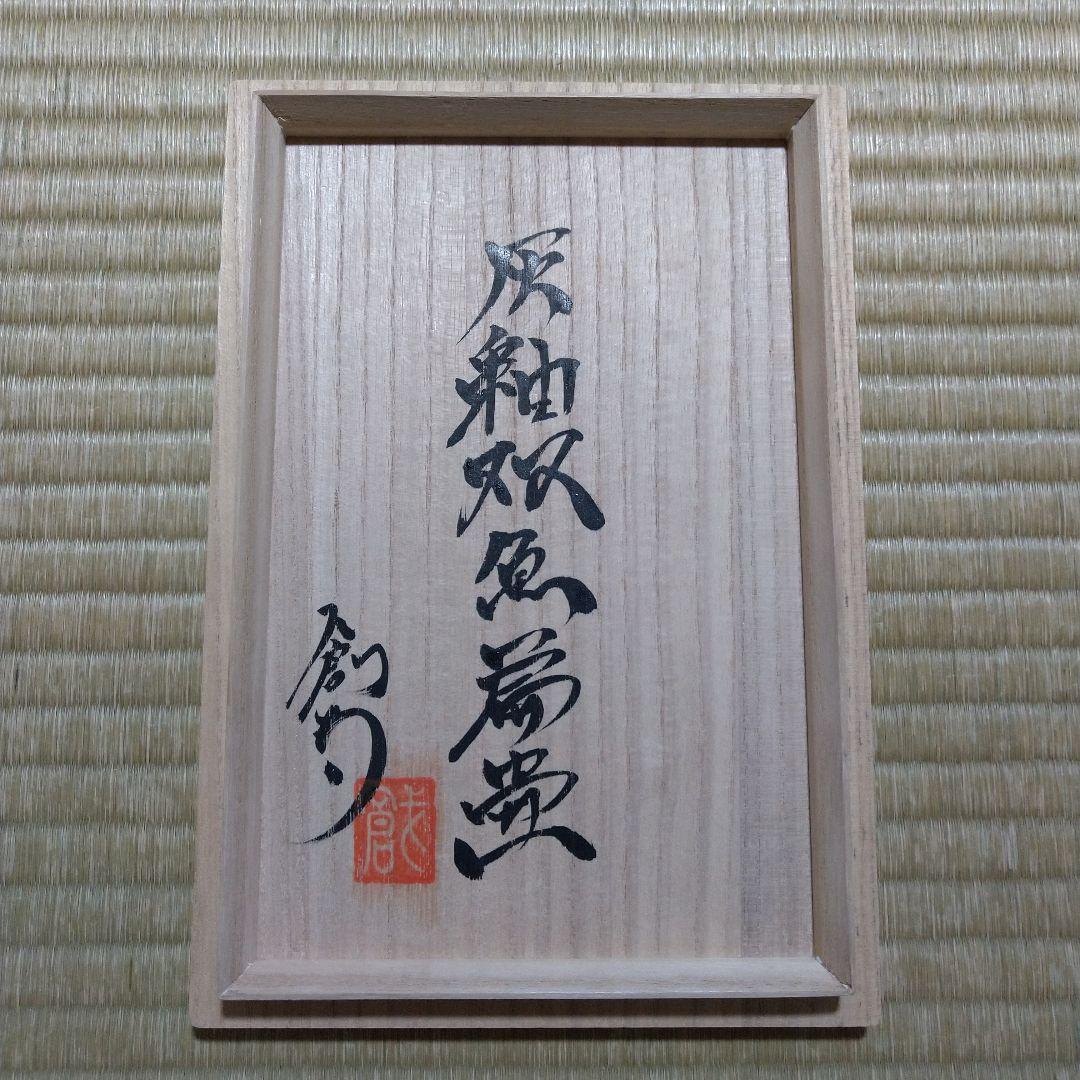 灰釉双魚扁壺
創